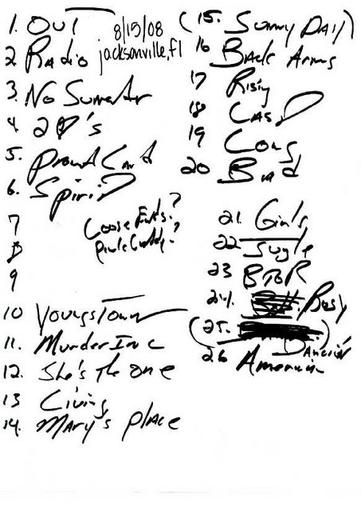 1. OUT
8/15/08
jacksonville, fl
2 Radio
3. No Surrender
4 2 's
5. Promised Land
6. Spirit
7 Loose Ends?
8 Pink Caddy?
9
10 Youngstown
11. Murder Inc
12. She's the one
13 Living
14. Mary's place
(15. Sunny Day)
16 Back Arms
17 Rising
18 Last
19 Long
20 Bad
21. Girls
22 
23 BTOR
24. Rosy
(25. )
Dancing
26 American